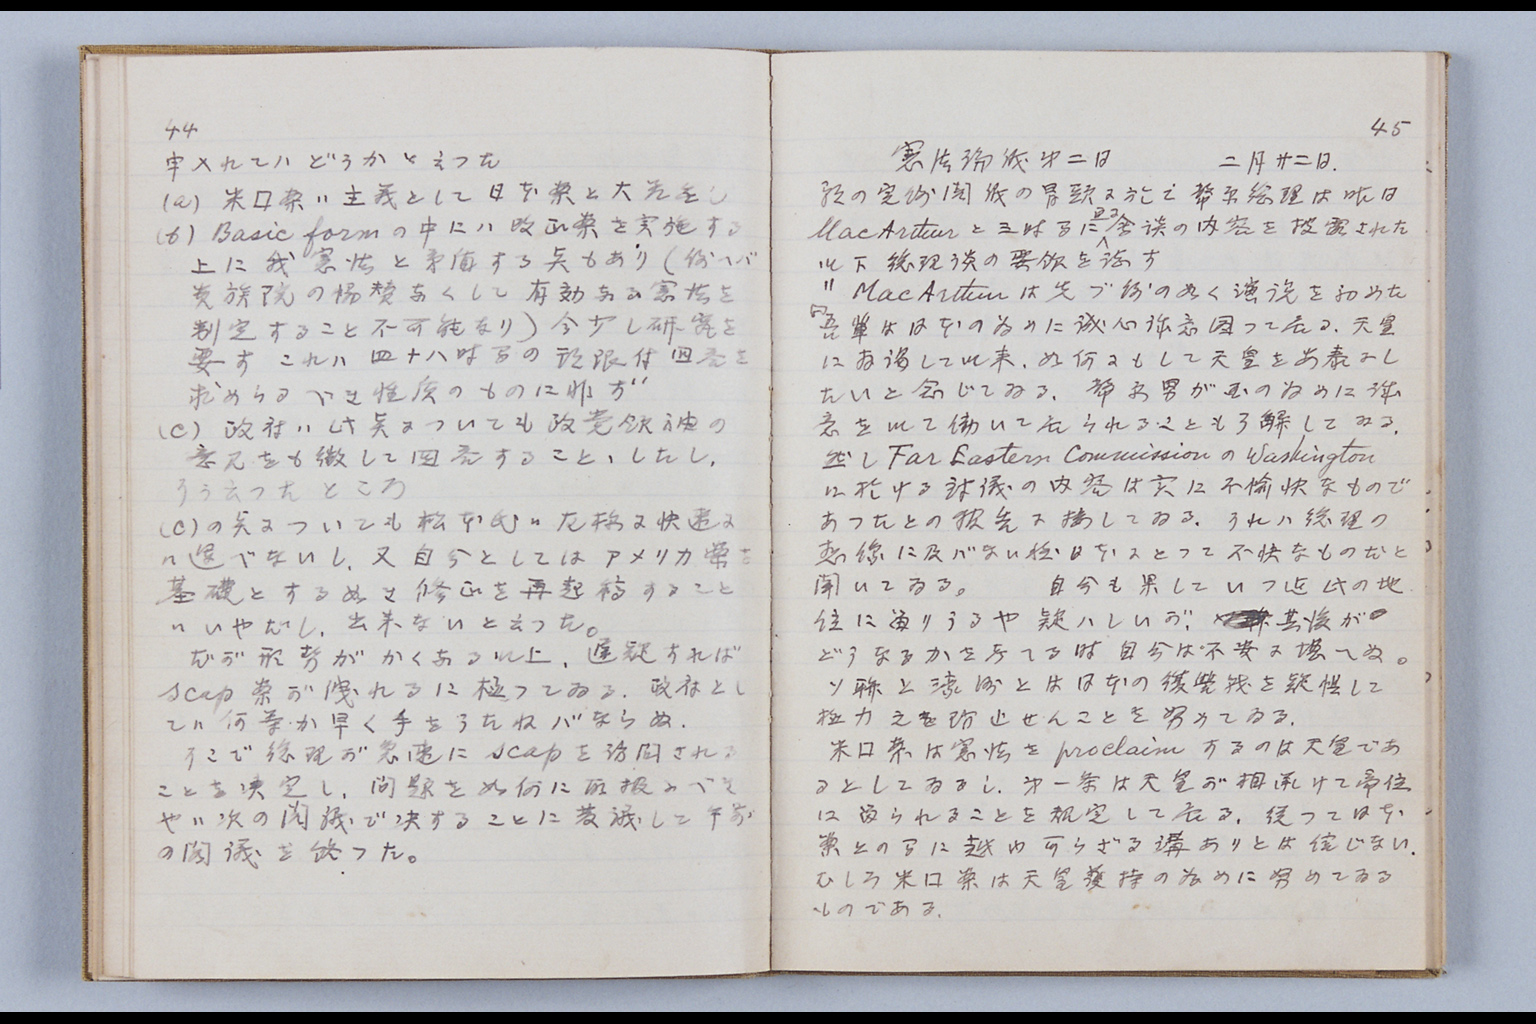 44
申入れてハどうかと云つた
(a) 米口案ハ主義として日本案と大差なし
(b) Basic formの中にハ改正案を実施する
上に我憲法と矛盾する点もあり(例ヘバ
貴族院の協賛なくして有効なる憲法を
制定すること不可能なり)今少し研究を
要す これハ四十八時間の期限付回答を
求めらるべき性質のものに非ず
(c) 政府ハ此点についても政党領袖の
意見をも徴して回答することゝしたし、
そう云つたところ
(c)の点についても松本氏ハ左様に快速に
ハ運べないし、又自分としてはアメリカ案を
基礎とする如き修正を再起稿すること
ハいやだし、出来ないと云つた。
だが形勢がかくある以上、遅疑すれば
scap案が洩れるに極つてゐる、政府とし
てハ何等か早く手をうたねバならぬ、
そこで総理が急速にscapを訪問される
ことを決定し、問題を如何に取扱ふべき
やハ次の閣議で決することに芦議して午前
の閣議を終つた。
45
憲法論議第二日 二月廿二日、
朝の定例閣議の冒頭に於て幣原総理は昨日
MacArthurと三時間に亘る会談の内容を披露された
以下総理談の要領を誌す
〃MacArthurは先づ例の如く演説を初めた
「吾輩は日本の為めに誠心誠意図つて居る、天皇
に拝謁して以来、如何にもして天皇を安泰にし
たいと念じてゐる、幣原男が国の為めに誠
意を以て働いて居られることも了解してゐる、
然しFar Eastern CommissionのWashington
に於ける討議の内容は実に不愉快なもので
あつたとの報告に接してゐる、それハ総理の
想像に及バない程日本にとつて不快なものだと
聞いてゐる。 自分も果していつ迄此の地
位に留りうるや疑ハしいが、其後が
どうなるかを考へる時自分は不安に堪へぬ。
ソ聯と濠洲とは日本の復讐戦を疑惧して
極力之を防止せんことを努めてゐる、
米口案は憲法をproclaimするのは天皇であ
るとしてゐるし、第一条は天皇が相承けて帝位
に留られることを規定して居る、従つて日本
案との間に越ゆ可らざる溝ありとは信じない、
むしろ米口案は天皇護持の為めに努めてゐる
ものである、